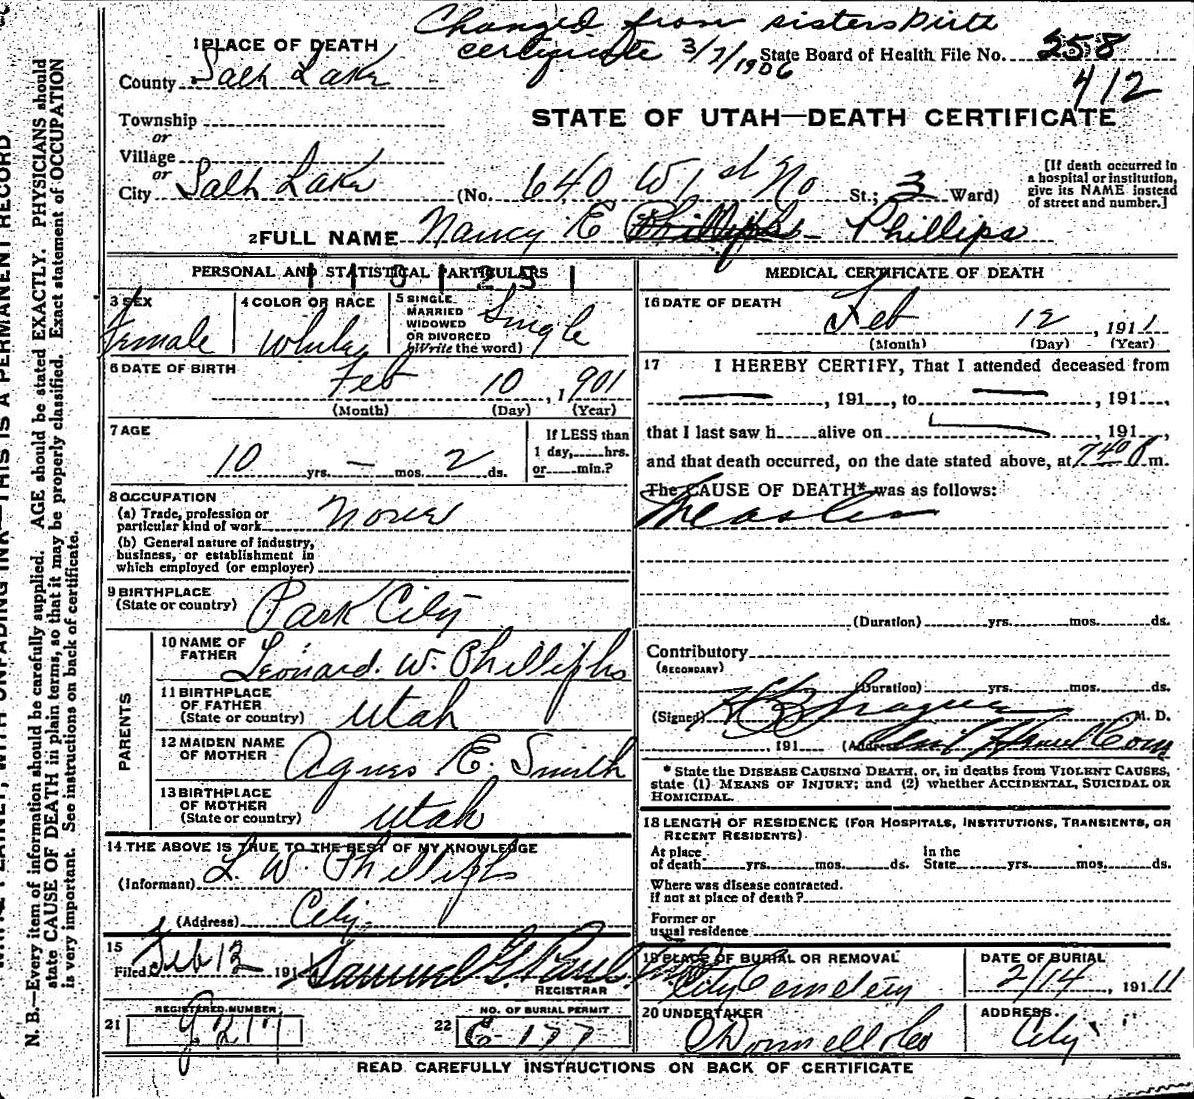 Changed from sisters birth
certificate 3/7/1906
State Board of Health File No. 258
412
1 PLACE OF DEATH
County Salt Lake
STATE OF UTAH—DEATH CERTIFICATE
Township
or
Village
or
City Salt Lake (No. 640 W 1st No St.; 3 Ward)
[If death occurred in
a hospital or institution,
give its NAME instead
of street and number.]
2 FULL NAME Nancy E Phillips Phillips
PERSONAL AND STATISTICAL PARTICULARS
3 SEX
Female
4 COLOR OR RACE
White
5 SINGLE
MARRIED
WIDOWED
OR DIVORCED
(Write the word)
Single
6 DATE OF BIRTH
Feb 10, 1,901
(Month) (Day) (Year)
7 AGE
10 yrs. — mos. 2 ds.
If LESS than
1 day, hrs.
or min.?
8 OCCUPATION
(a) Trade, profession or
particular kind of work None
(b) General nature of industry,
business, or establishment in
which employed (or employer)
9 BIRTHPLACE
(State or country) Park City
PARENTS
10 NAME OF
FATHER Leonard. W. Phillips
11 BIRTHPLACE
OF FATHER
(State or country) Utah
12 MAIDEN NAME
OF MOTHER Agnes E. Smith
13 BIRTHPLACE
OF MOTHER
(State or country) Utah
14 THE ABOVE IS TRUE TO THE BEST OF MY KNOWLEDGE
(Informant) L. W. Phillips
(Address) City.
15
Filed Feb 13 191 Samuel G. Paul
REGISTRAR
21 REGISTERED NUMBER
22 NO. OF BURIAL PERMIT
177
MEDICAL CERTIFICATE OF DEATH
16 DATE OF DEATH
Feb 12, 1911
(Month) (Day) (Year)
17 I HEREBY CERTIFY, That I attended deceased from
—, 191, to —, 191,
that I last saw h alive on 191,
and that death occurred, on the date stated above, at 740 P m.
The CAUSE OF DEATH* was as follows:
Measles
(Duration) yrs. mos. ds.
Contributory
(SECONDARY)
(Duration) yrs. mos. ds.
(Signed) Sprague M. D.
191 (Address)
* State the DISEASE CAUSING DEATH, or, in deaths from VIOLENT CAUSES,
state (1) MEANS OF INJURY; and (2) whether ACCIDENTAL, SUICIDAL OR
HOMICIDAL.
18 LENGTH OF RESIDENCE (FOR HOSPITALS, INSTITUTIONS, TRANSIENTS, OR
RECENT RESIDENTS).
At place
of death yrs. mos. ds.
In the
State yrs. mos. ds.
Where was disease contracted.
if not at place of death?
Former or
usual residence
19 PLACE OF BURIAL OR REMOVAL
City Cemetery
DATE OF BURIAL
2/14, 1911
20 UNDERTAKER
O'Donnell & Co
ADDRESS.
City
READ CAREFULLY INSTRUCTIONS ON BACK OF CERTIFICATE
N. B.—Every item of information should be carefully supplied. AGE should be stated EXACTLY. PHYSICIANS should
state CAUSE OF DEATH in plain terms, so that it may be properly classified. Exact statement of OCCUPATION
is very important. See instructions on back of certificate.
WRITE PLAINLY, WITH UNFADING INK—THIS IS A PERMANENT RECORD